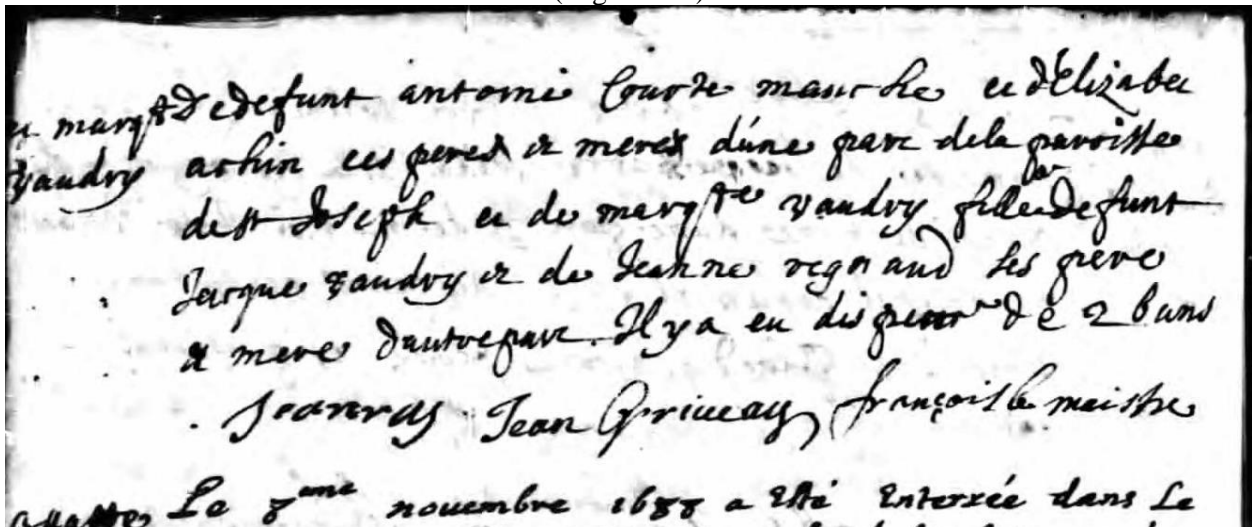 et marg^te De defunt antoine Courte manche et d'Elizabet
Vaudry achin ces peres et meres d'une part dela paroisse
de st Joseph et de marg^te vaudry fille de defunt
Jacque vaudry et de Jeanne regnaud ses pere
et mere dautre part. Il y a eu dispense de 2 bans
Jean Griveau françois le maistre
Le 8^eme novembre 1688 a Esté Enterrée dans Le